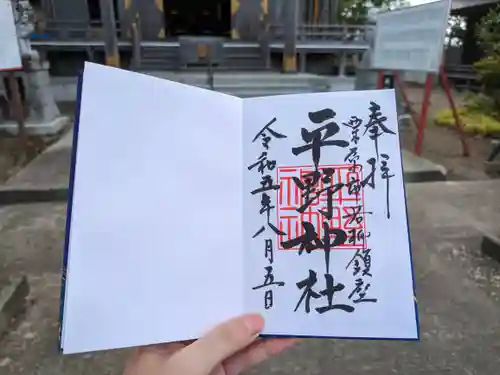 奉拝
栗原市若柳鎮座
平野神社
令和五年八月五日